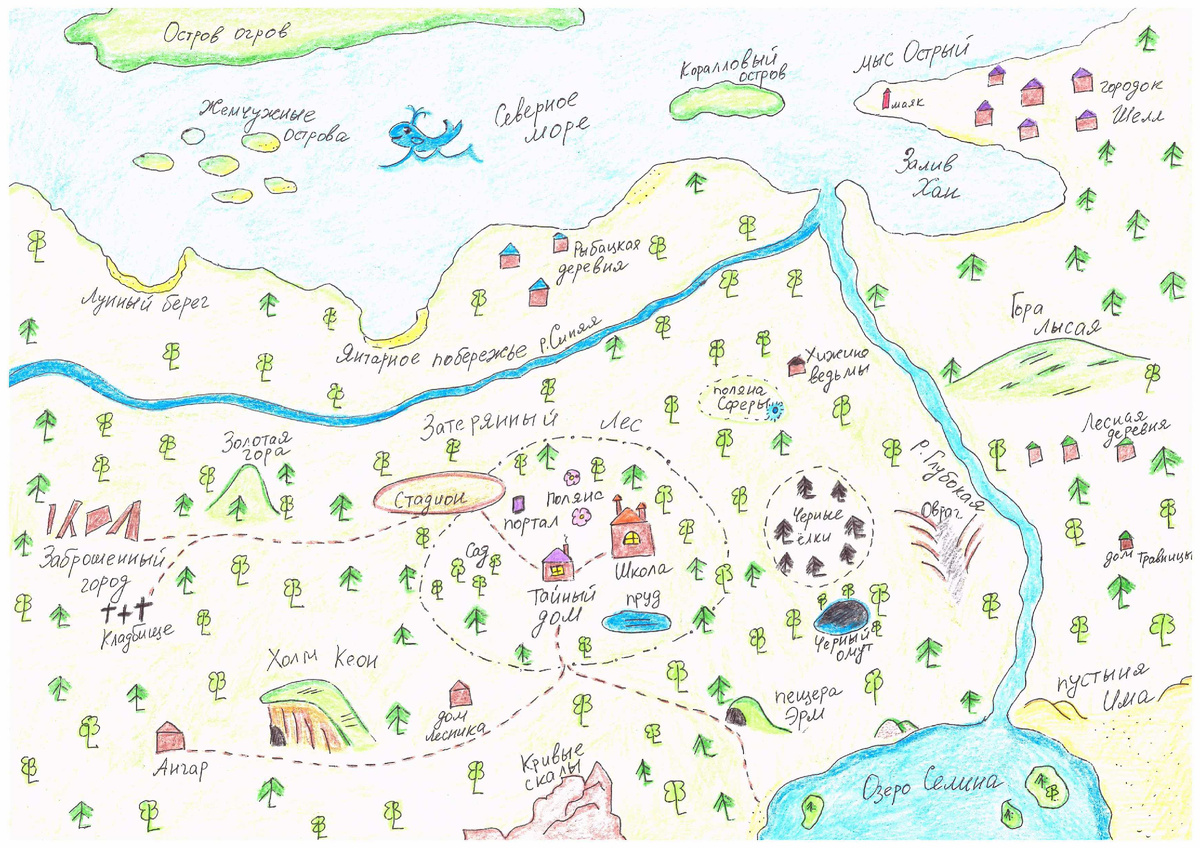 Остров огров
Жемчужные
острова
Северное
море
Коралловый
остров
мыс Острый
маяк
городок
Шелл
Залив
Хан
Рыбацкая
деревня
Лунный берег
Янтарное побережье
р. Синяя
Гора
Лысая
Хижина
ведьмы
поляна
Сферы
Затерянный Лес
Золотая
гора
Лесная
деревня
р. Глубокая
Овраг
Стадион
портал
Черные
ёлки
Сад
Школа
Тайный
дом
пруд
Заброшенный
город
Кладбище
дом Травницы
Черный
омут
Холм Кеон
дом
лесника
пещера
Эрм
пустыня
Има
Ангар
Кривые
скалы
Озеро Селина